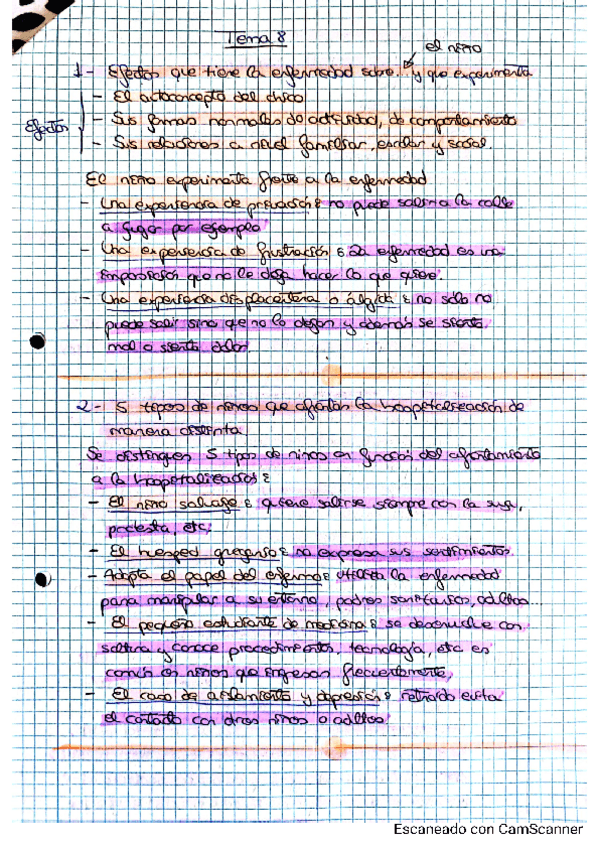 Tema 8
el niño
1- Efectos que tiene la enfermedad sobre. y que experimenta
- El autoconcepto del chico
Efectos - Sus formas normales de actividad, de comportamiento
- Sus relaciones a nivel familiar, escolar y social.
El niño experimenta frente a la enfermedad
- Una experiencia de privación: no puede salir a la calle
a jugar por ejemplo
- Una experiencia de frustración: La enfermedad es una
imposición que no le deja hacer lo que quiere
- Una experiencia displacentera o álgida: no sólo no
puede salir sino que no lo dejan y además se siente
mal o siente dolor.
2- 5 tipos de niños que afrontan la hospitalización de
manera distinta
Se distinguen 5 tipos de niños en función del afrontamiento
a la hospitalización:
- El niño salvaje: quiere salirse siempre con la suya,
protesta, etc;
- El huesped gregario: no expresa sus sentimientos.
- Adopta el papel del enfermo: utiliza la enfermedad
para manipular a su entorno, padres sanitarios, adultos...
- El pequeño estudiante de medicina: se desenvuelve con
soltura y conoce procedimientos, tecnología, etc es
común en niños que ingresan frecuentemente,
- El caso de aislamiento y depresión: retraído evita
el contacto con otros niños o adultos
Escaneado con CamScanner